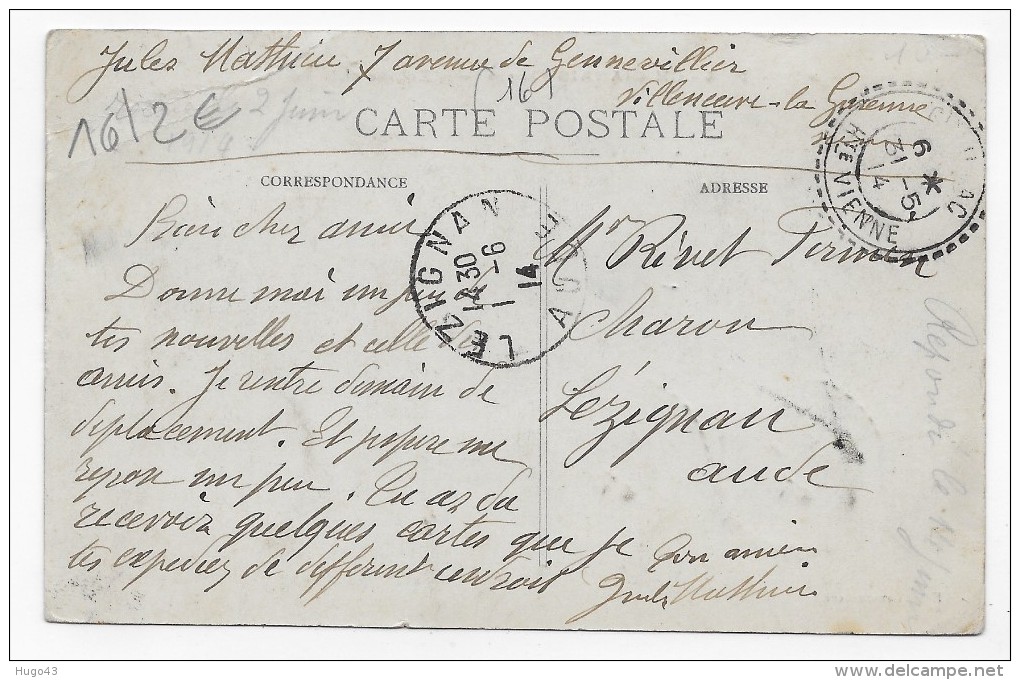 Jules Mathieu 7 avenue de Gennevillier
Villeneuve-la Garenne
161
16/2€
2 Juin
1914
CARTE POSTALE
CORRESPONDANCE
ADRESSE
Bien cher ami
Donne moi un peu de
tes nouvelles et celle des
amis. Je rentre demain de
deplacement. Et j'espere me
repon un peu. Tu as du
recevoir quelques cartes que je
tes expediez de different endroit
Ton ami
Jules Mathieu
Mr Rivet Firmin
Charon
Lézignan
aude
LEZIGNAN
14 30
1 -6
14
AUDE
6 *
31 -5
14
HTE VIENNE
Repondu le
Hugo43
www.delcampe.net